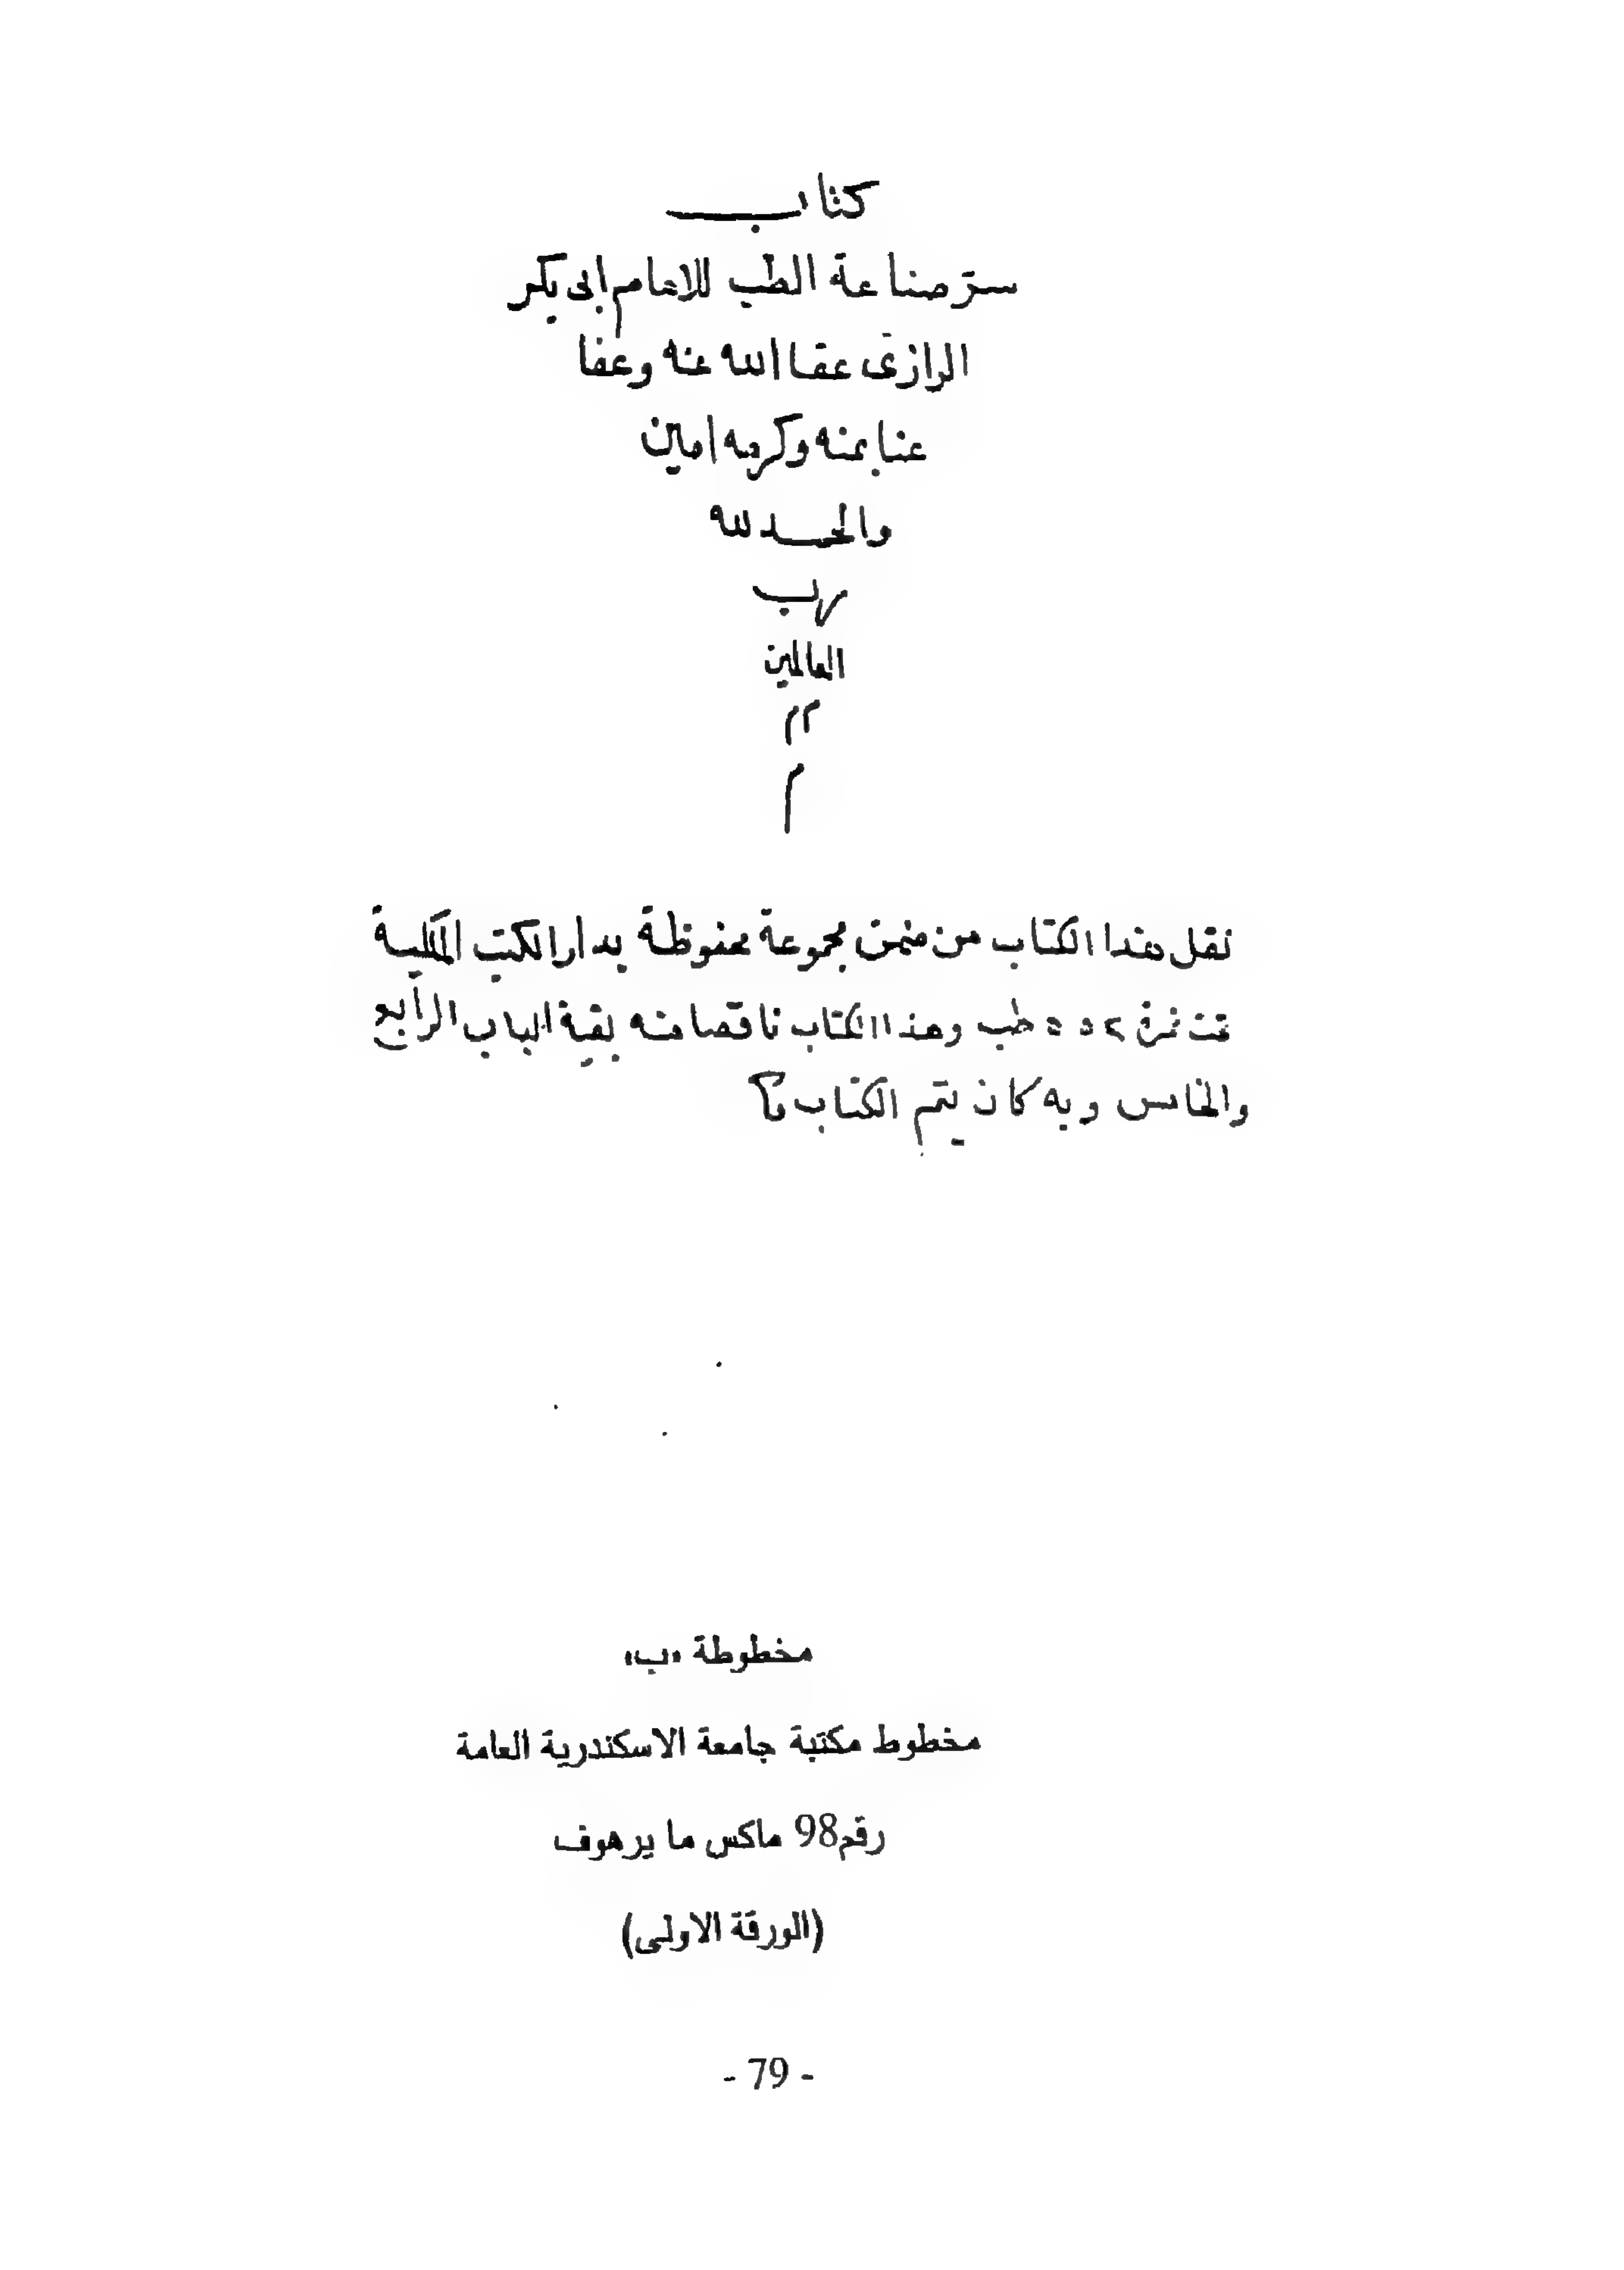 كتاب
سر صناعة الطب للامام ابى بكر
الرازى عفا الله عنه وعفا
عنا بمنه وكرمه امين
والحمد لله
رب
العالمين
م م
م
نقل هذا الكتاب من ضمن مجموعة محفوظة بدار الكتب الملكية
تحت نمرة طب وهذا الكتاب ناقصا منه بقية الباب الرابع
والخامس وبه كان يتم الكتاب
مخطوطة «ب»
مخطوط مكتبة جامعة الاسكندرية العامة
رقم98 ماكس ما يرهوف
(الورقة الاولى)
- 79 -